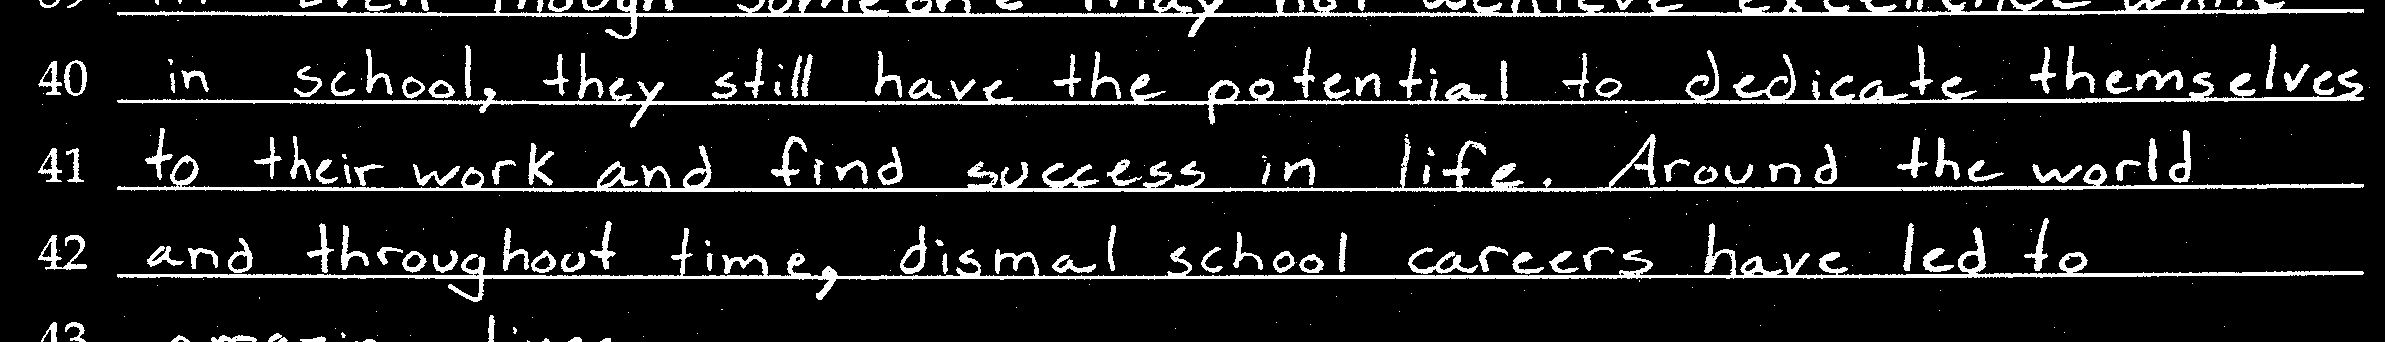 39 it. Even though someone may not achieve excellence while
40 in school, they still have the potential to dedicate themselves
41 to their work and find success in life. Around the world
42 and throughout time, dismal school careers have led to
43 lives